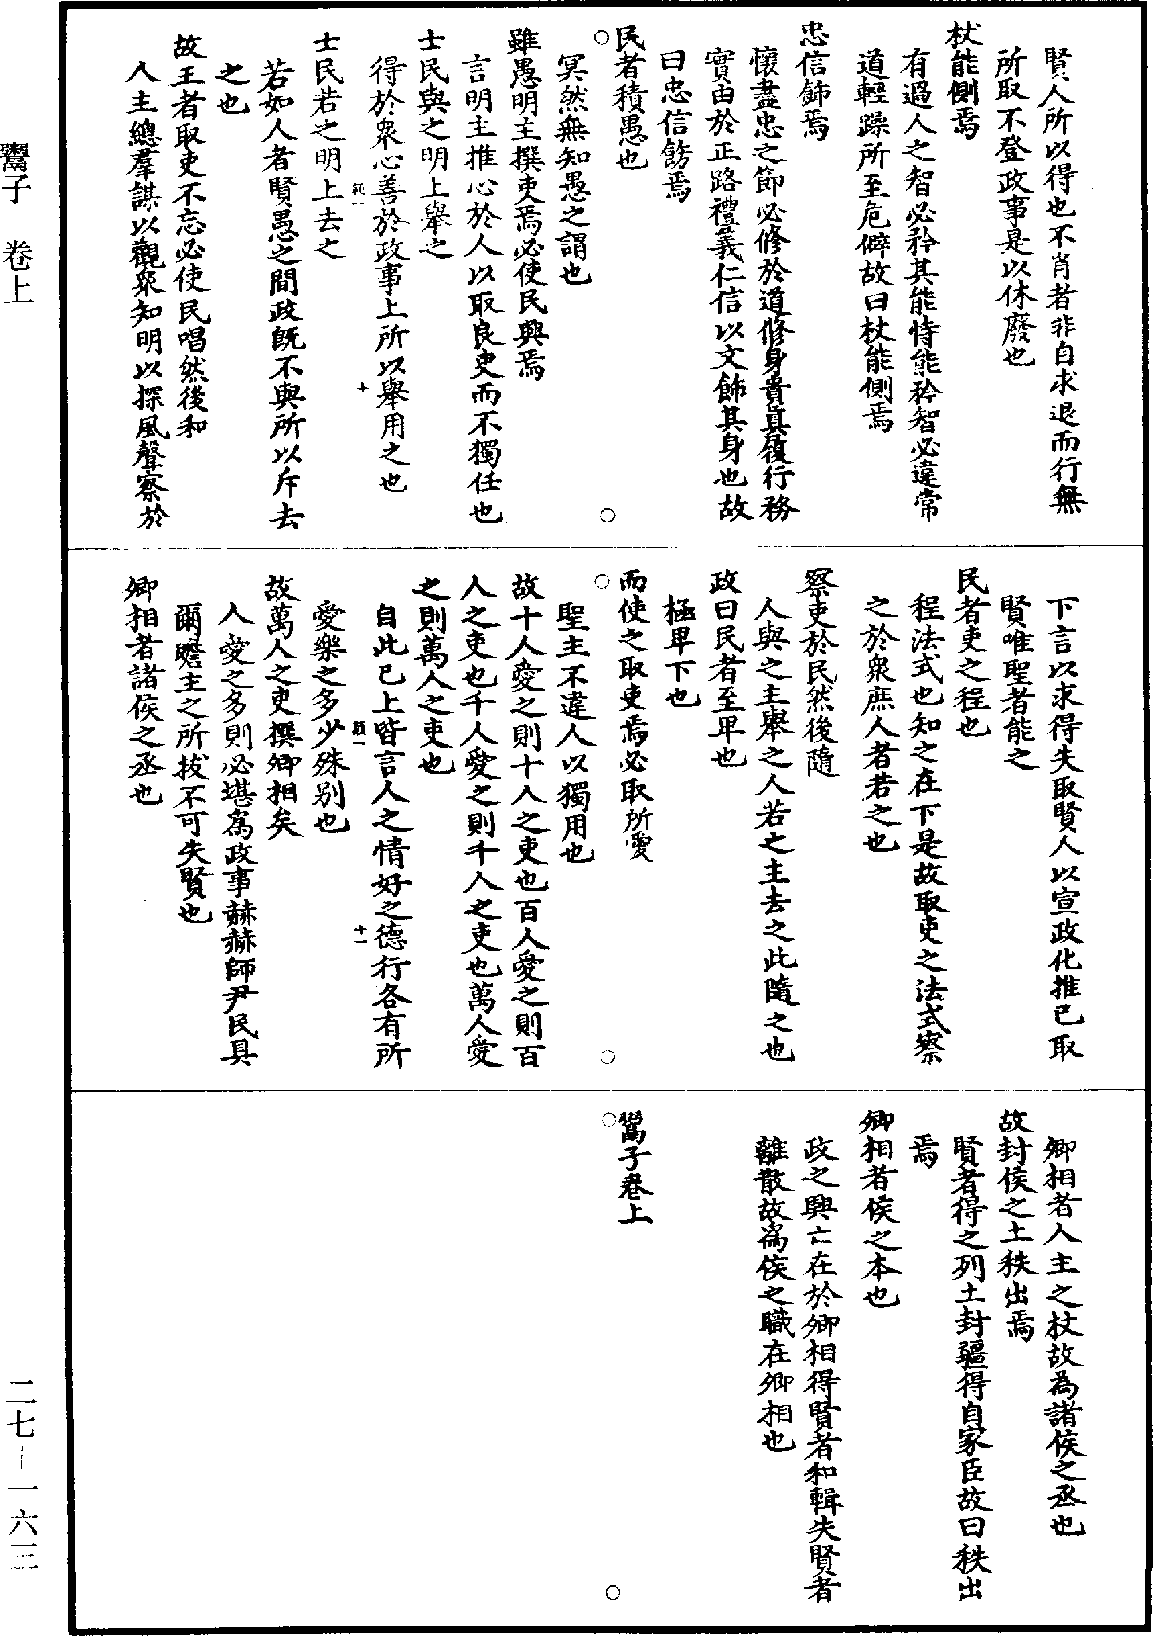 賢人所以得也不肖者非自求退而行無
所取不登政事是以休廢也
杖能側焉
有過人之智必矜其能恃能矜智必違常
道輕躁所至危僻故曰杖能側焉
忠信飾焉
懷盡忠之節必修於道修身貴真履行務
實由於正路禮義仁信以文飾其身也故
曰忠信飾焉
民者積愚也
冥然無知愚之謂也
雖愚明主撰吏焉必使民興焉
言明主推心於人以取良吏而不獨任也
士民與之明上舉之
得於衆心善於政事上所以舉用之也
士民若之明上去之
若如人者賢愚之間政既不與所以斥去
之也
故王者取吏不忘必使民唱然後和
人主總羣謀以觀衆知明以探風聲察於
下言以求得失取賢人以宣政化推已取
賢唯聖者能之
民者吏之程也
程法式也知之在下是故取吏之法式察
之於衆庶人者若之也
察吏於民然後隨
人與之主舉之人若之主去之此隨之也
政曰民者至卑也
極卑下也
而使之取吏焉必取所愛
聖主不違人以獨用也
故十人愛之則十人之吏也百人愛之則百
人之吏也千人愛之則千人之吏也萬人愛
之則萬人之吏也
自此已上皆言人之情好之德行各有所
愛樂之多少殊别也
故萬人之吏撰卿相矣
人愛之多則必堪爲政事赫赫師尹民具
爾瞻主之所拔不可失賢也
卿相者諸侯之丞也
卿相者人主之杖故為諸侯之丞也
故封侯之土秩出焉
賢者得之列土封疆得自家臣故曰秩出
焉
卿相者侯之本也
政之興亡在於卿相得賢者和輯失賢者
離散故爲侯之職在卿相也
鬻子卷上
鬻子 卷上
二七－一六三
十
十一